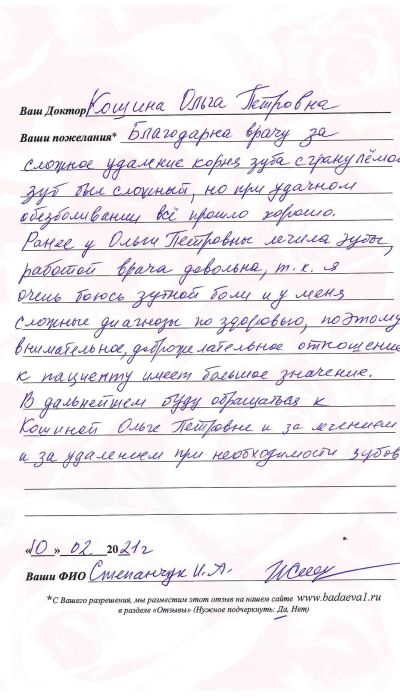 Ваш Доктор Кошина Ольга Петровна
Ваши пожелания* Благодарна врачу за
сложное удаление корня зуба с гранулёмой
зуб был сложный, но при удачном
обезболивании всё прошло хорошо.
Ранее у Ольги Петровны лечила зубы,
работой врача довольна, т.к. я
очень боюсь зубной боли и у меня
сложные диагнозы по здоровью, поэтому
внимательное, доброжелательное отношение
к пациенту имеет большое значение.
В дальнейшем буду обращаться к
Кошиной Ольге Петровне и за лечением
и за удалением при необходимости зубов
«10» 02 2021г
Ваши ФИО Степанчук И.А.
*С Вашего разрешения, мы разместим этот отзыв на нашем сайте www.badaeva1.ru
в разделе «Отзывы» (Нужное подчеркнуть: Да, Нет)